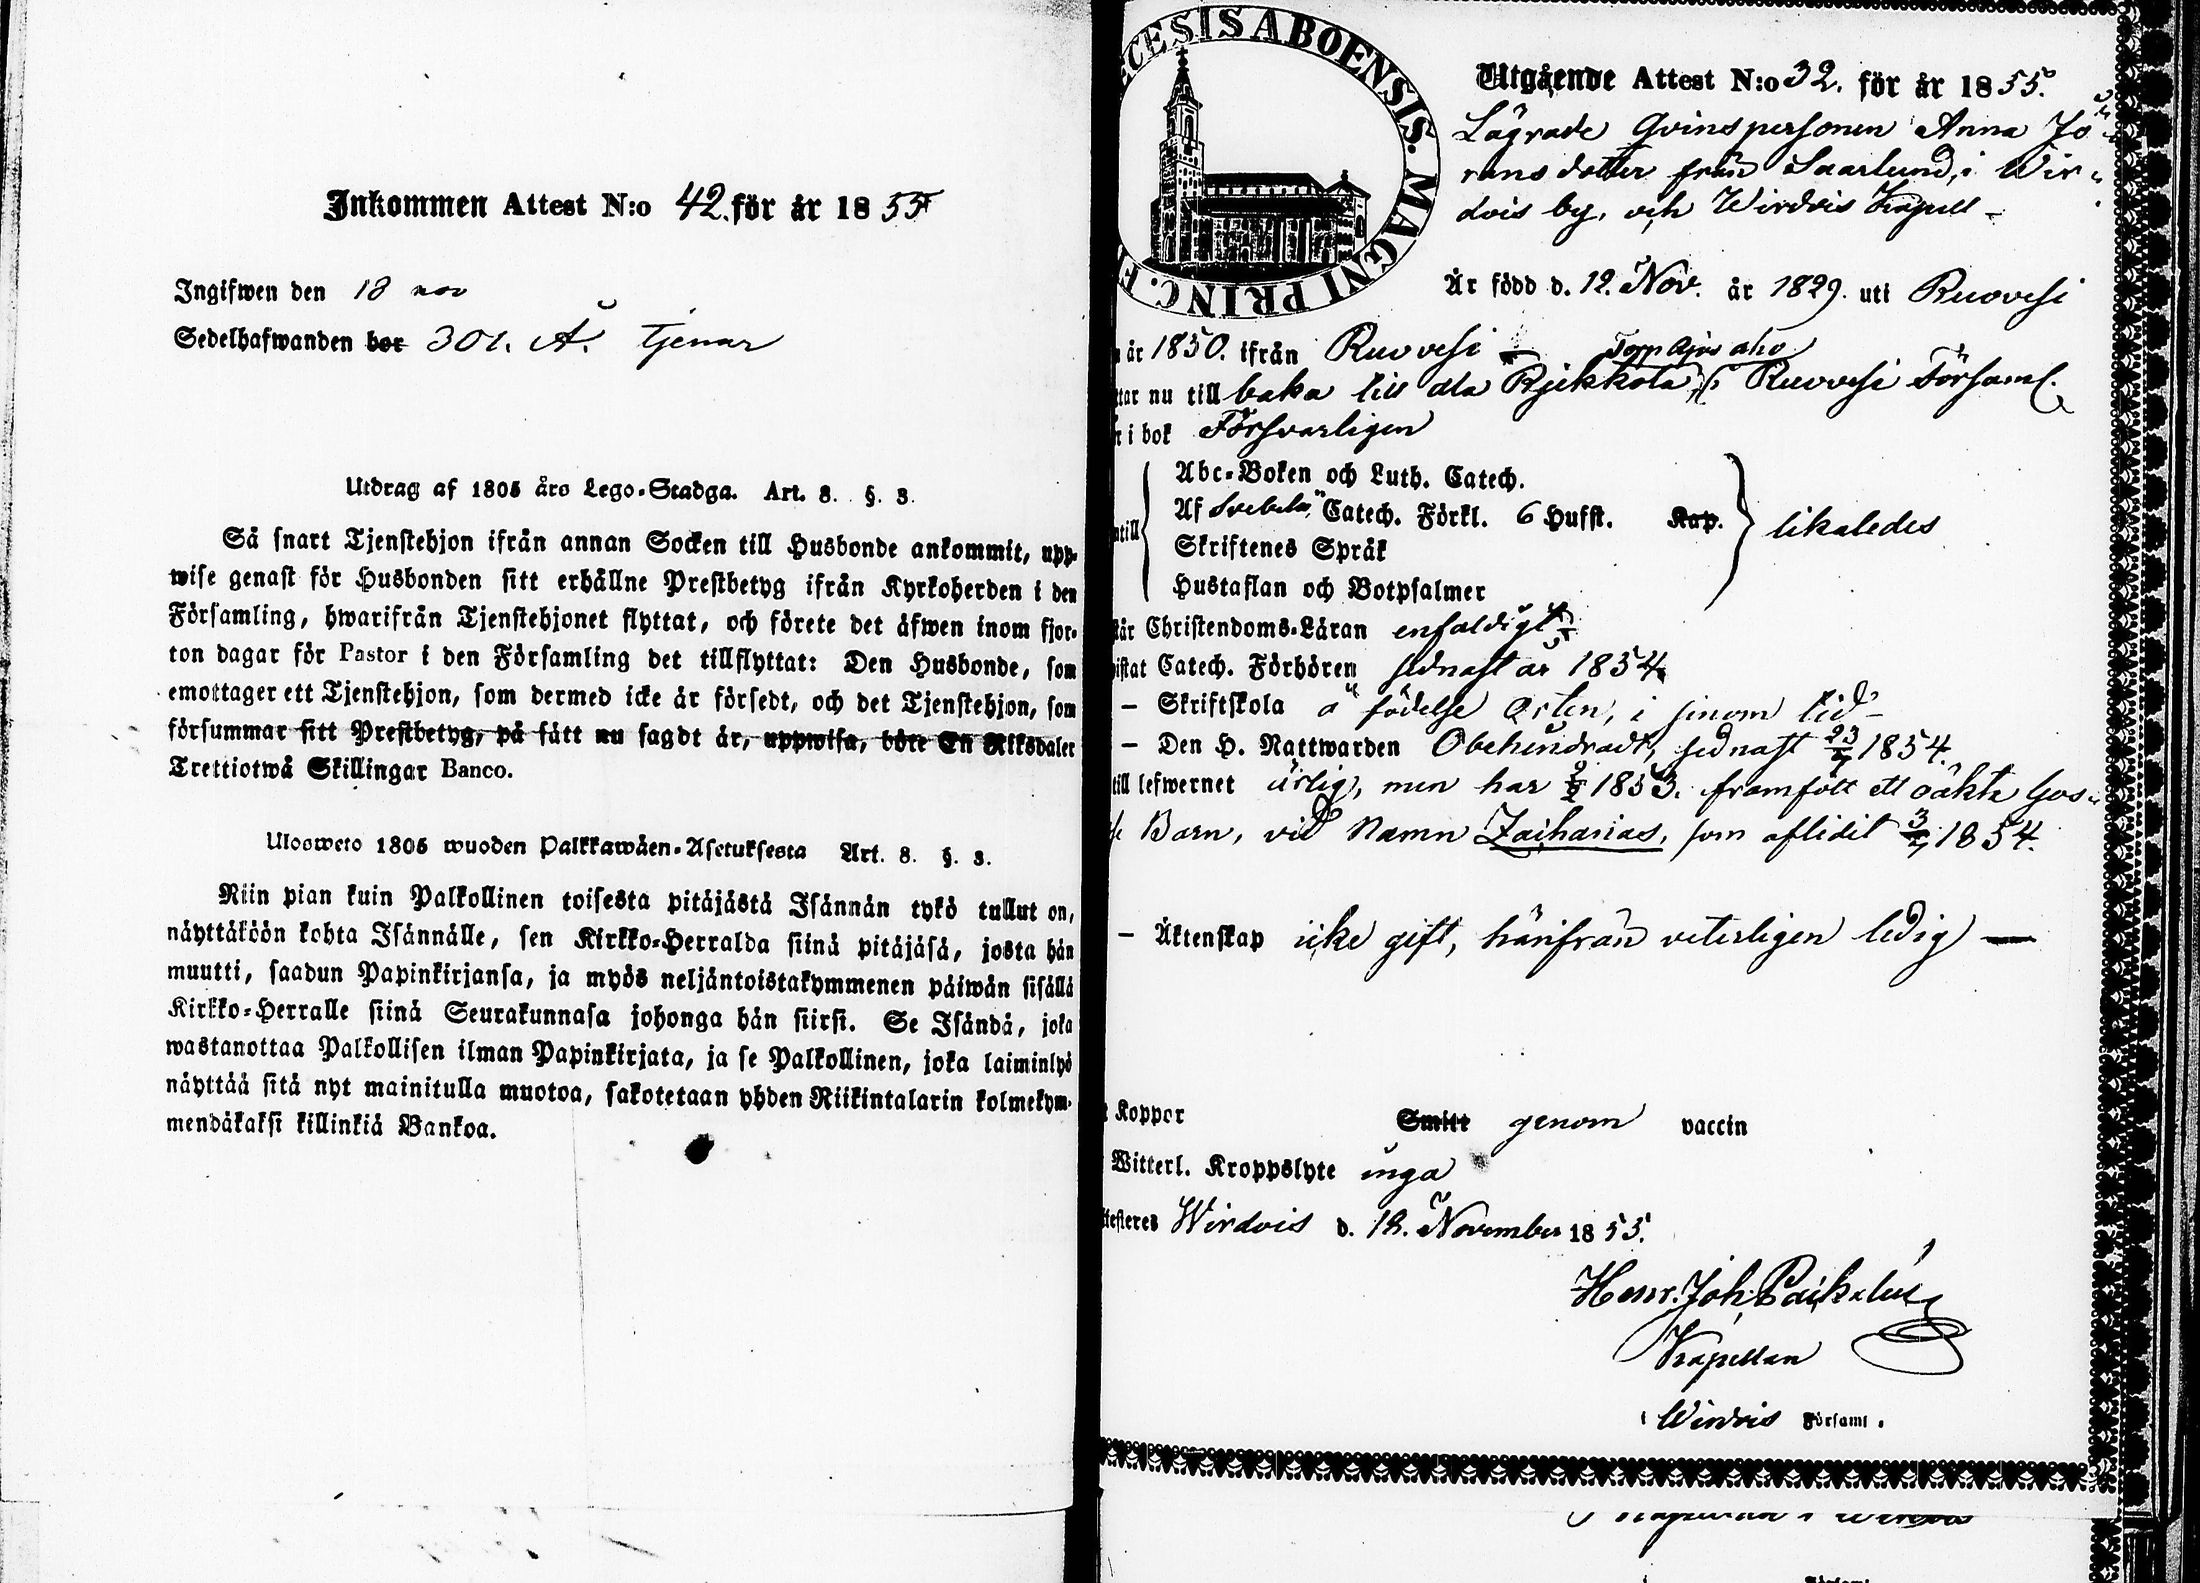 Inkommen Attest N:o 42. för år 1855
Ingifwen den 18 nov
Sedelhafwanden bor 301. A. tjenar
Utdrag af 1805 års Lego-Stadga. Art. 8. §. 3.
Så snart Tjenstehjon ifrån annan Socken till Husbonde ankommit, upp-
wise genast för Husbonden sitt erhållne Prestbetyg ifrån Kyrkoherden i den
Församling, hwarifrån Tjenstehjonet flyttat, och förete det äfwen inom fjor-
ton dagar för Pastor i den Församling det tillflyttat: Den Husbonde, som
emottager ett Tjenstehjon, som dermed icke är försedt, och det Tjenstehjon, som
försummar sitt Prestbetyg, på sätt nu sagdt är, uppwisa, böte En Riksdaler
Trettiotwå Skillingar Banco.
Ulosweto 1805 wuoden Palkkawäen-Asetuksesta Art. 8. §. 3.
Niin pian kuin Palkollinen toisesta pitäjästä Isännän tykö tullut on,
näyttäköön kohta Isännälle, sen Kirkko-Herralda siinä pitäjäsä, josta hän
muutti, saadun Papinkirjansa, ja myös neljäntoistakymmenen päiwän sisällä
Kirkko-Herralle siinä Seurakunnasa johonga hän siirsi. Se Isändä, joka
wastanottaa Palkollisen ilman Papinkirjata, ja se Palkollinen, joka laiminlyö
näyttää sitä nyt mainitulla muotoa, sakotetaan yhden Riikintalarin kolmekym-
mendäkaksi killinkiä Bankoa.
ECESIS ABOENSIS. MAGNI PRINC. F
Utgående Attest N:o 32. för år 1855.
Lägrade Qvinspersonen Anna Jö-
rans dotter från Saarlund, i Wir-
dois by, och Wirdois Kapell -
Är född d. 12. Nov. år 1829. uti Ruovesi
år 1850. ifrån Ruovesi
Torp Ajos aho
tar nu tillbaka till dla Pjekkola, i Ruovesi Församl.
i bok Försvarligen
Abc-Boken och Luth. Catech.
Af Svebelii Catech. Förkl. 6 Hufst. Kap.
ntill likaledes
Skriftenes Språk
Hustaflan och Botpsalmer
tår Christendoms-Läran enfaldigt
istat Catech. Förhören sednast år 1854
– Skriftskola å födelse Orten, i sinom tid
– Den H. Nattwarden Obehindradt, sednast 23/7 1854.
till lefwernet ärlig, men har 1853. framfött ett oäkta Gos-
se Barn, vid namn Zacharias, som aflidit 3/7 1854.
– Äktenskap icke gift, härifrån veterligen ledig –
Koppor Smitt genom vaccin
Witterl. Kroppslyte inga
testeres Wirdois d. 12. November 1855.
Henr. Joh.
Kapellan
i Wirdois Församl.